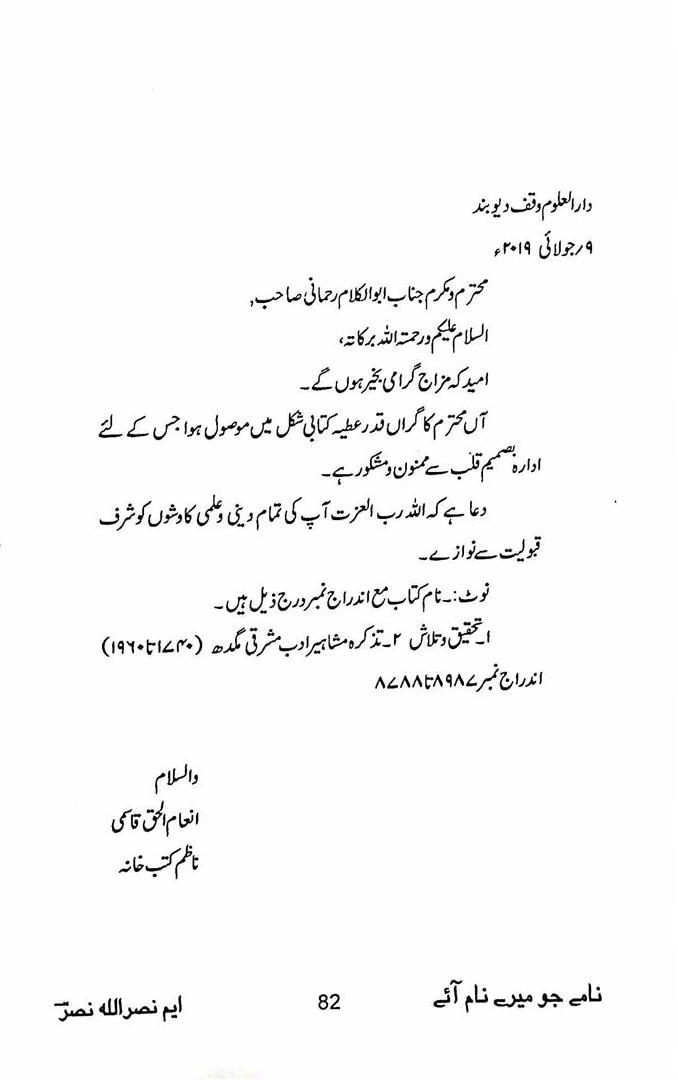 دارالعلوم وقف دیوبند
۹؍جولائی ۲۰۱۹ء
محترم و مکرم جناب ابوالکلام رحمانی صاحب,
السلام علیکم ورحمتہ اللہ برکاتہ،
امید کہ مزاج گرامی بخیر ہوں گے۔
آں محترم کا گراں قدر عطیہ کتابی شکل میں موصول ہوا جس کے لئے
ادارہ بصمیم قلب سے ممنون و مشکور ہے۔
دعا ہے کہ اللہ رب العزت آپ کی تمام دینی و علمی کاوشوں کو شرف
قبولیت سے نوازے۔
نوٹ:۔نام کتاب مع اندراج نمبر درج ذیل ہیں۔
۱۔تحقیق و تلاش ۲۔تذکرہ مشاہیر ادب مشرقی مگدھ (۱۷۴۰ تا ۱۹۶۰)
اندراج نمبر ۸۹۸۷ تا ۸۷۸۸
والسلام
انعام الحق قاسمی
ناظم کتب خانہ
نامے جو میرے نام آئے 82 ایم نصراللہ نصرؔ